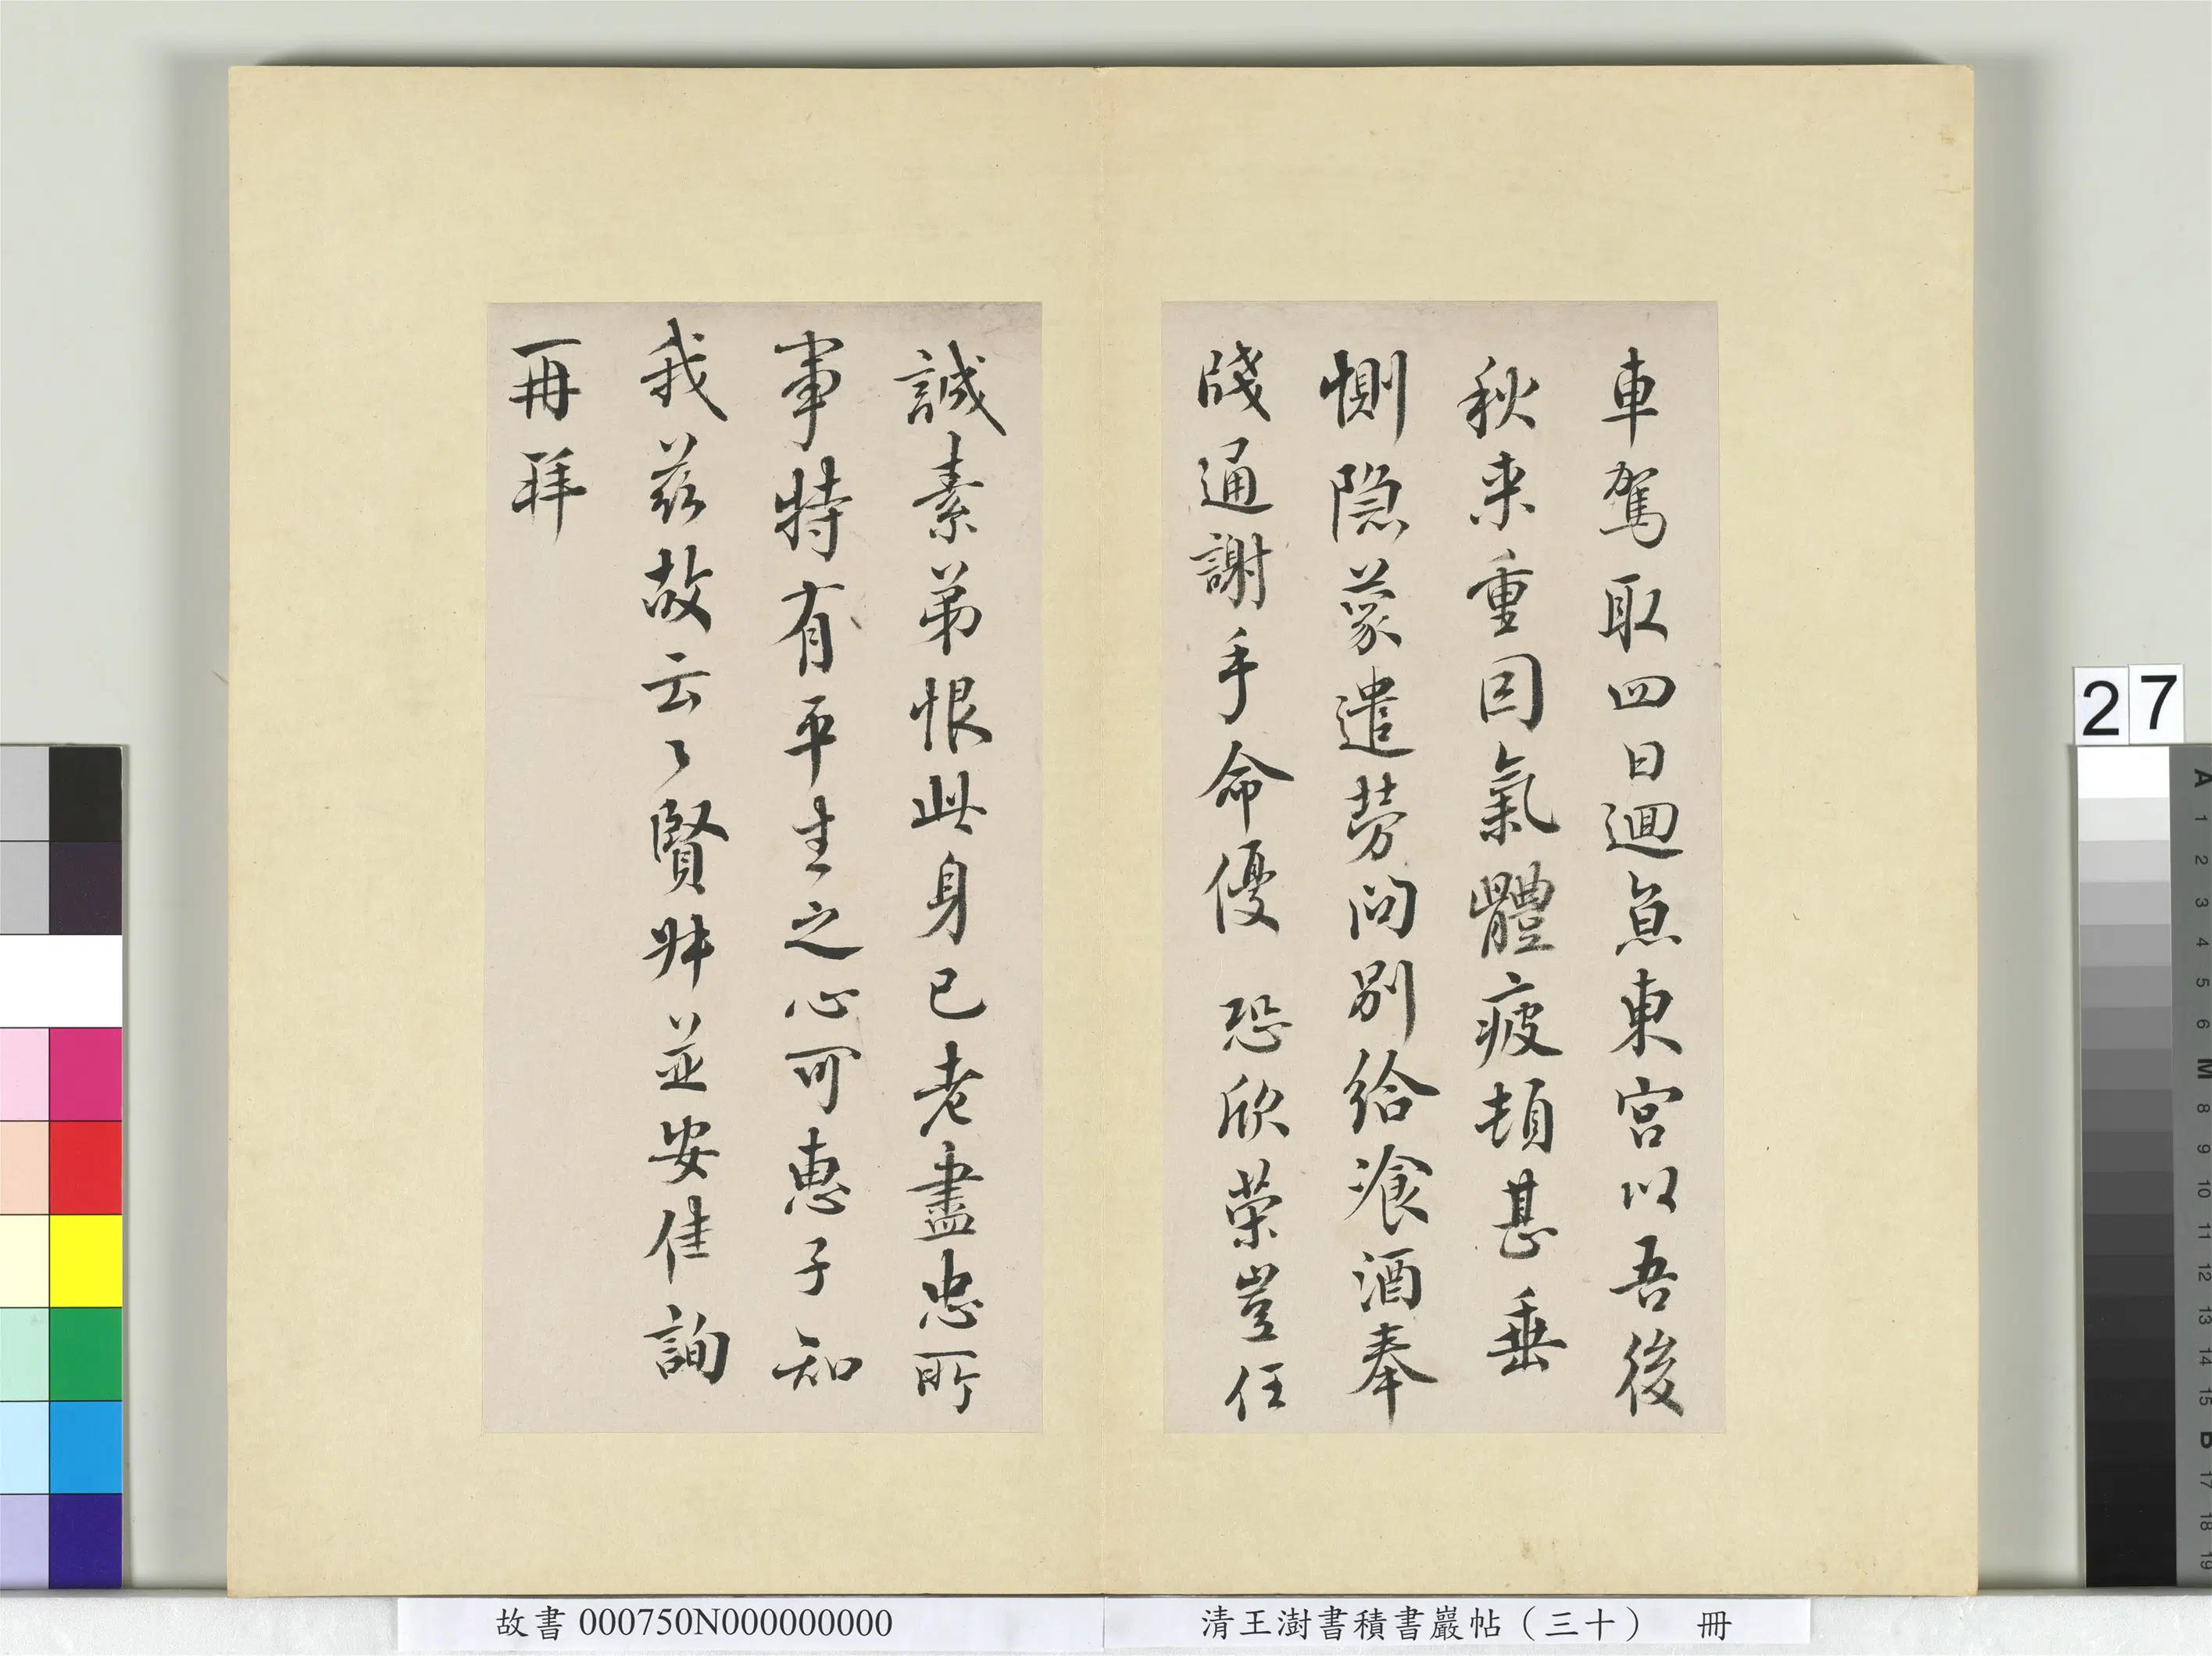 車駕取四日迴烝東宮以吾後
秋来重因氣體疲頓甚垂
惻隐蒙遣勞問別給飡酒奉
牋通謝手命優 恐欣荣豈任
誠素弟恨此身已老盡忠所
事特有平生之心可惠子知
我茲故云々賢姊並安佳詢
再拜
27
故書000750N000000000
清王澍書積書巖帖（三十） 冊
A 1 2 3 4 5 6 M 8 9 10 11 12 13 14 15 B 17 18 19